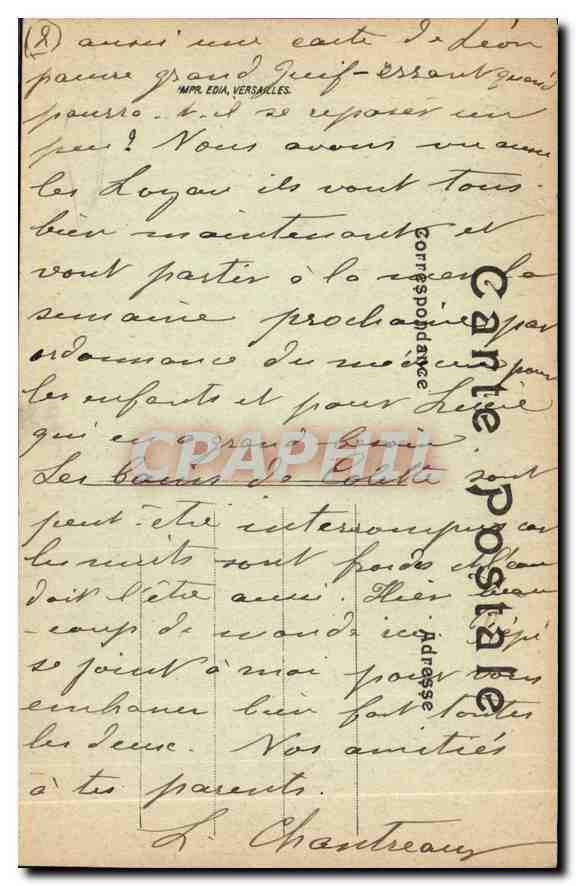 (2) aussi une carte de Léon
pauvre grand Juif-errant quand
IMPR. EDIA, VERSAILLES.
pourra-t-il se reposer un
peu? Nous avons vu aussi
les Loyau ils vont tous
bien maintenant et
vont partir à la mer la
semaine prochaine par
ordonnance du médecin pour
les enfants et pour
qui en a grand besoin
Les bains de Colette sont
peut-être interrompus car
les nuits sont froides et l'eau
doit l'être aussi. Hier beau
-coup de monde ici Pépé
se joint à moi pour vous
embrasser bien fort toutes
les deux. Nos amitiés
à tes parents.
L. Chantreau
Carte Postale
Correspondance
Adresse
CPAPHIL